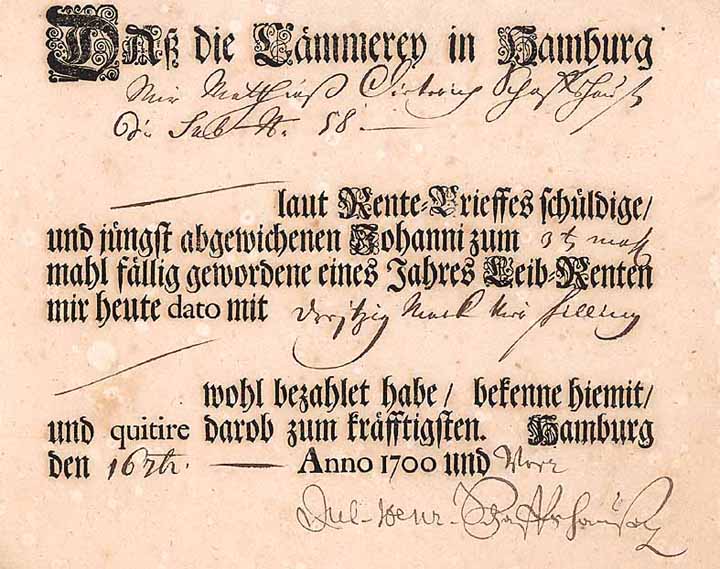 Daß die Cämmerey in Hamburg
Mir Matthias Dieterich Schaffshausß
sub N. 58.
laut Rente-Brieffes schüldige/
und jüngst abgewichenen Johanni zum
mahl fällig gewordene eines Jahres Leib-Renten
mir heute dato mit Mark
wohl bezahlet habe/ bekenne hiemit/
und quitire darob zum kräfftigsten. Hamburg
den Anno 1700 und
Schaffshausen